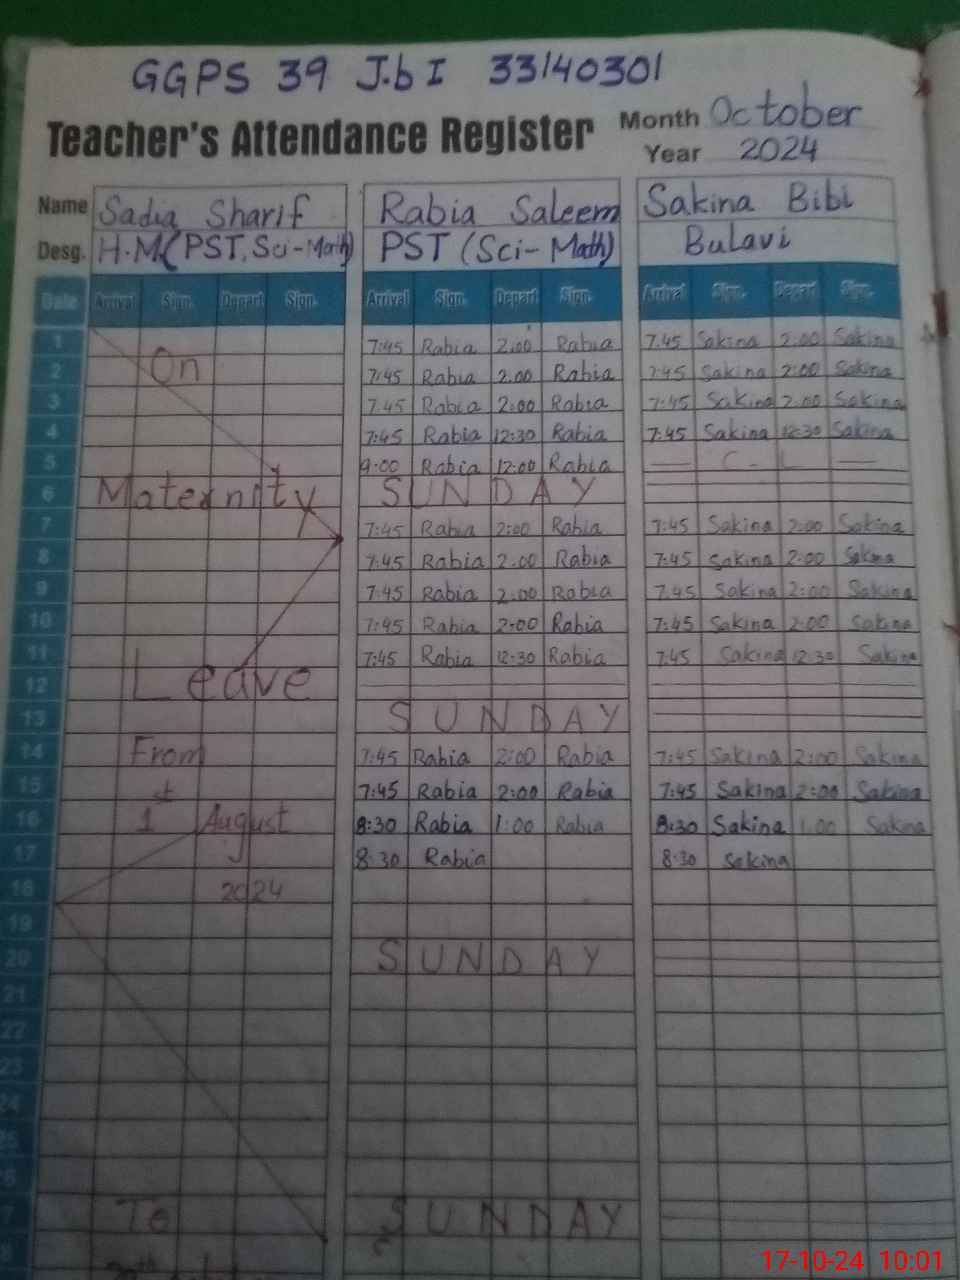 GGPS 39 J.b I 33140301
Teacher's Attendance Register Month October
Year 2024
Name Sadia Sharif Rabia Saleem Sakina Bibi
Desg. H.M(PST, Sci-Math) PST (Sci-Math) Bulavi
Date Arrival Sign. Depart Sign. Arrival Sign. Depart Sign. Arrival Sign. Depart Sign.
1 7:45 Rabia 2:00 Rabia 7.45 Sakina 2:00 Sakina
2 On 7:45 Rabia 2.00 Rabia 7:45 Sakina 2:00 Sakina
3 7.45 Rabia 2:00 Rabia 7:45 Sakina 2.00 Sakina
4 7:45 Rabia 12:30 Rabia 7:45 Sakina 12:30 Sakina
5 9:00 Rabia 12:00 Rabia C-L
6 Maternity SUNDAY
7 7:45 Rabia 2:00 Rabia 7:45 Sakina 2:00 Sakina
8 7:45 Rabia 2.00 Rabia 7:45 Sakina 2:00 Sakina
9 7:45 Rabia 2:00 Rabia 7.45 Sakina 2:00 Sakina
10 7:45 Rabia 2:00 Rabia 7:45 Sakina 2:00 Sakina
11 7:45 Rabia 12:30 Rabia 7:45 Sakina 12:30 Sakina
12 Leave
13 SUNDAY
14 From 7:45 Rabia 2:00 Rabia 7:45 Sakina 2:00 Sakina
15 7:45 Rabia 2:00 Rabia 7:45 Sakina 2:00 Sakina
16 1st August 8:30 Rabia 1:00 Rabia 8:30 Sakina 1.00 Sakina
17 8:30 Rabia 8:30 Sakina
18 2024
19
20 SUNDAY
21
22
23
24
25
6
7 To SUNDAY
8
17-10-24 10:01